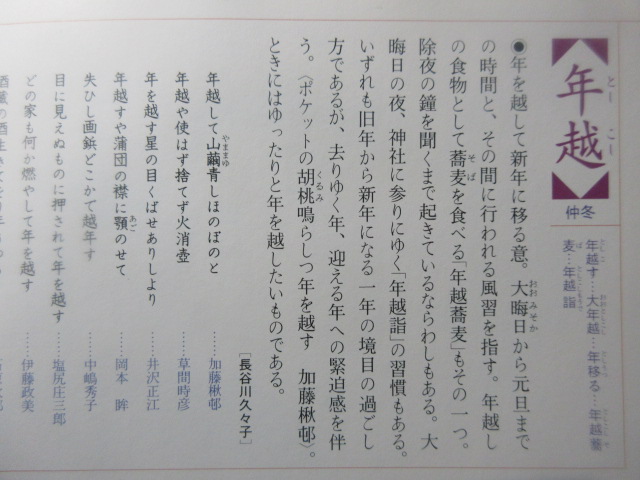 年越
としこし
仲冬
年越す…大年越…年移る…年越蕎
麦…年越詣
●年を越して新年に移る意。大晦日から元旦まで
の時間と、その間に行われる風習を指す。年越し
の食物として蕎麦を食べる「年越蕎麦」もその一つ。
除夜の鐘を聞くまで起きているならわしもある。大
晦日の夜、神社に参りにゆく「年越詣」の習慣もある。
いずれも旧年から新年になる一年の境目の過ごし
方であるが、去りゆく年、迎える年への緊迫感を伴
う。〈ポケットの胡桃鳴らしつ年を越す 加藤楸邨〉。
ときにはゆったりと年を越したいものである。
[長谷川久々子]
年越して山繭青しほのぼのと……加藤楸邨
年越や使はず捨てず火消壺……草間時彦
年を越す星の目くばせありしより……井沢正江
年越すや蒲団の襟に顎のせて……岡本眸
失ひし画鋲どこかで越年す……中嶋秀子
目に見えぬものに押されて年を越す……塩尻庄三郎
どの家も何か燃やして年を越す……伊藤政美